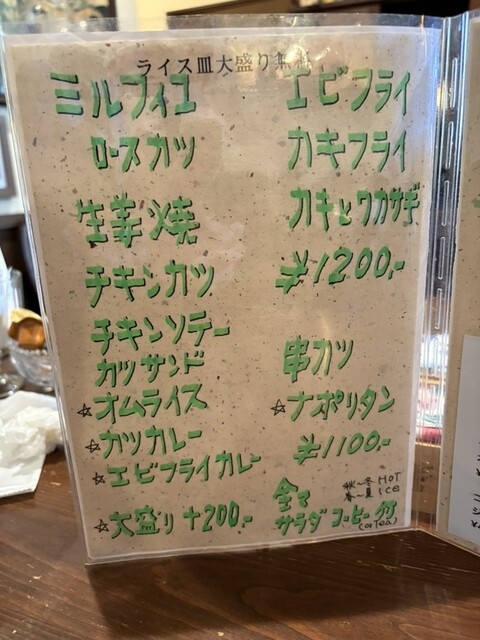 ライス皿大盛り無料
ミルフィユ
ロースカツ
生姜焼
チキンカツ
チキンソテー
カツサンド
☆オムライス
☆カツカレー
☆エビフライカレー
☆大盛り+200.-
エビフライ
カキフライ
カキとワカサギ
¥1200.-
串カツ
☆ナポリタン
¥1100.-
秋〜冬 HOT
春〜夏 Ice
全て
サラダ コーヒー付
(orTea)